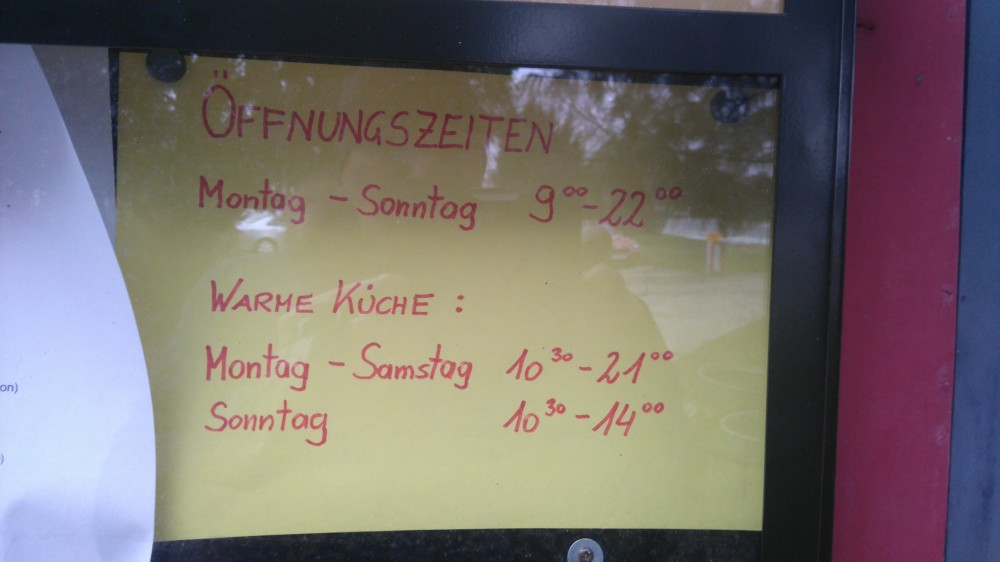 ÖFFNUNGSZEITEN
Montag - Sonntag 9⁰⁰-22⁰⁰
WARME KÜCHE :
Montag - Samstag 10³⁰-21⁰⁰
Sonntag 10³⁰-14⁰⁰
on)
)